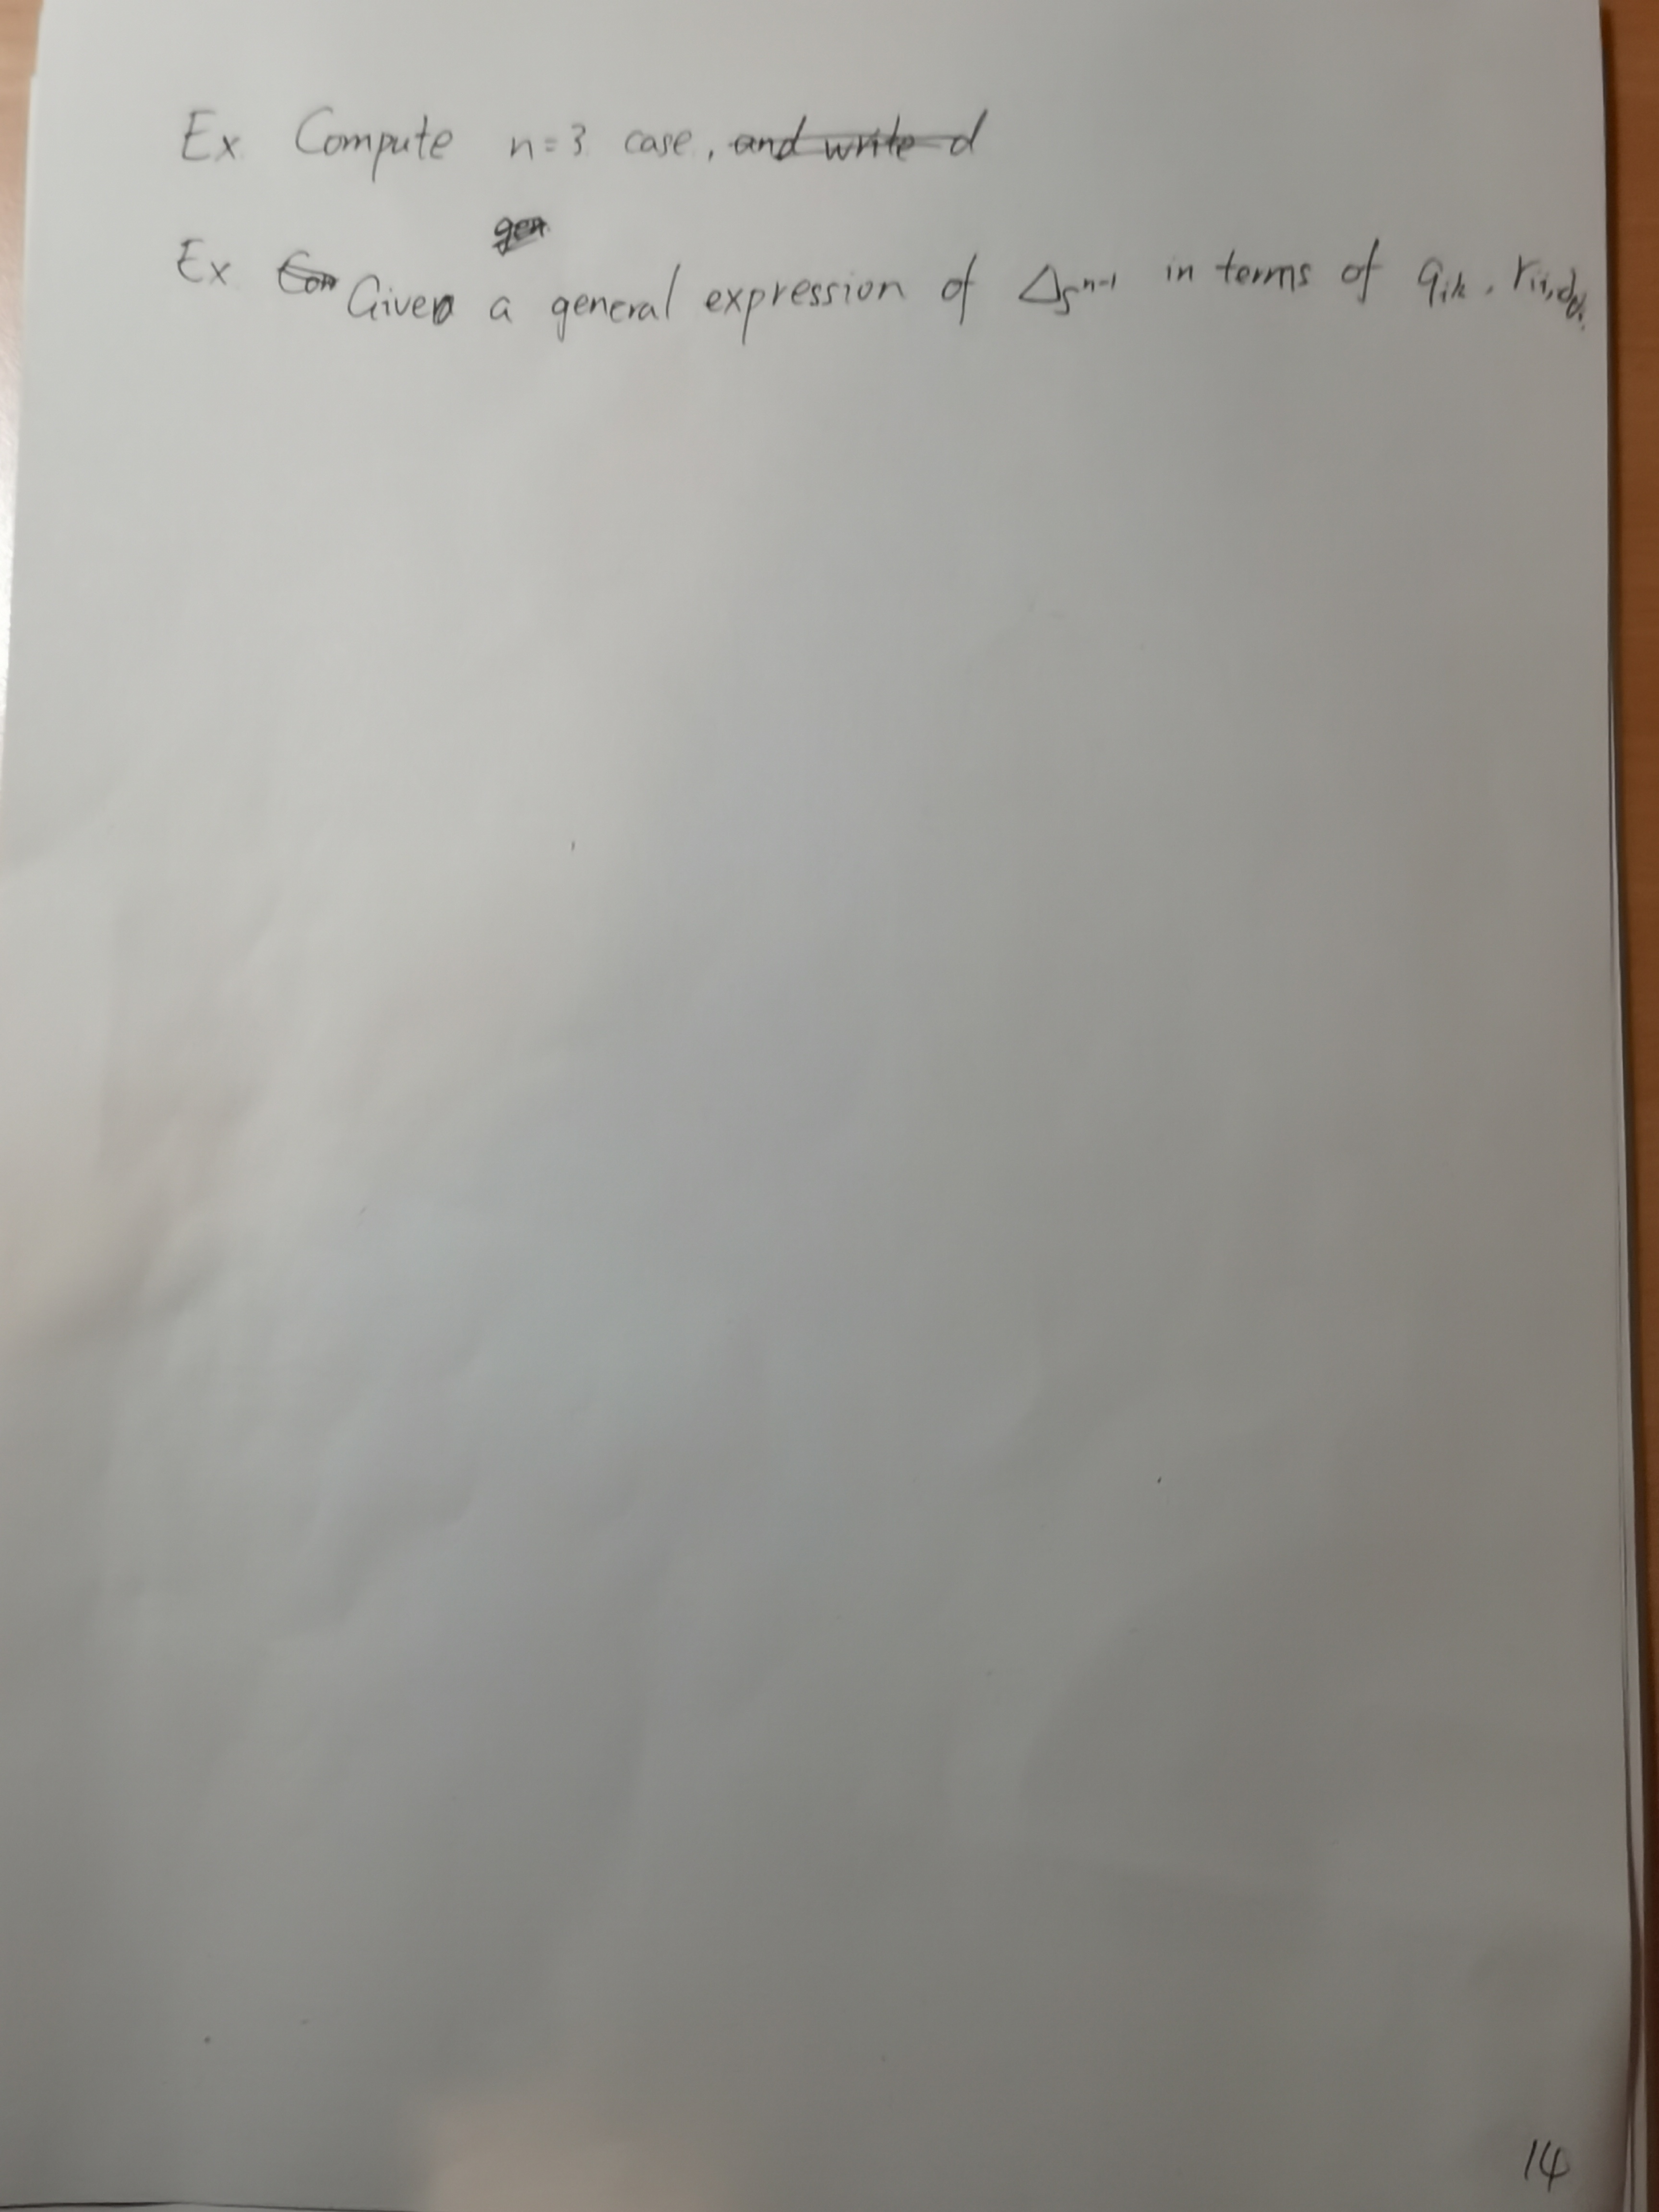 Ex Compute n=3 case, and write d
gen
Ex Com Given a general expression of Δ_{S^{n-1}} in terms of q_{ik}, r_{ij},
14